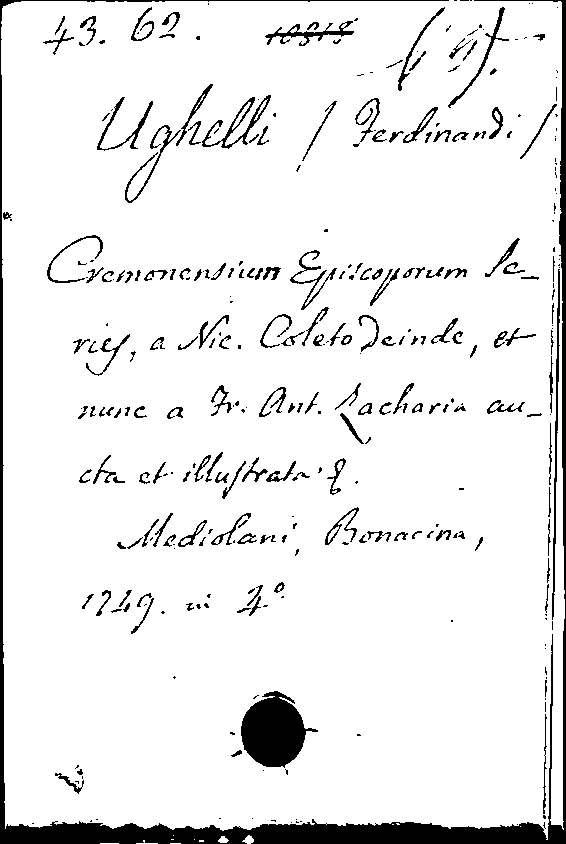 43. 62.
Ughelli / Ferdinandi /
Cremonensium Episcoporum Se-
ries, a Nic. Coleto deinde, et
nunc a Fr. Ant. Zacharia au-
cta et illustrata &.
Mediolani, Bonacina,
1749. in 4°